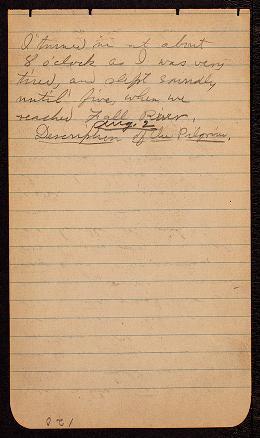 I turned in at about
8 o'clock as I was very
tired, and slept soundly
until five, when we
reached Fall River.
Aug. 2
Description of the Pilgrim.